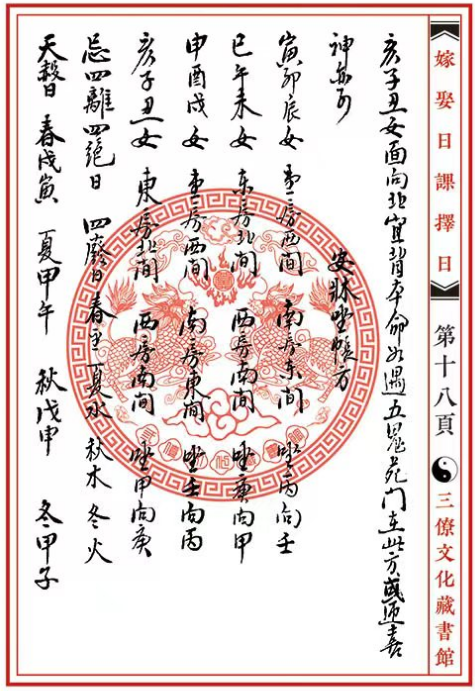 嫁娶日課擇日
第十八頁
三僚文化藏書館
亥子丑女面向北宜背本命如遇五鬼死門在此方或迎喜
神亦可
安牀坐帳方
寅卯辰女 房西間 南房东間 坐丙向壬
巳午未女 东房北間 西房南間 坐庚向甲
申酉戌女 房西間 南房東間 坐壬向丙
亥子丑女 東房北間 西房南間 坐甲向庚
忌四離四絕日 四廢日春 夏水 秋水 冬火
天赦日 春戊寅 夏甲午 秋戊申 冬甲子